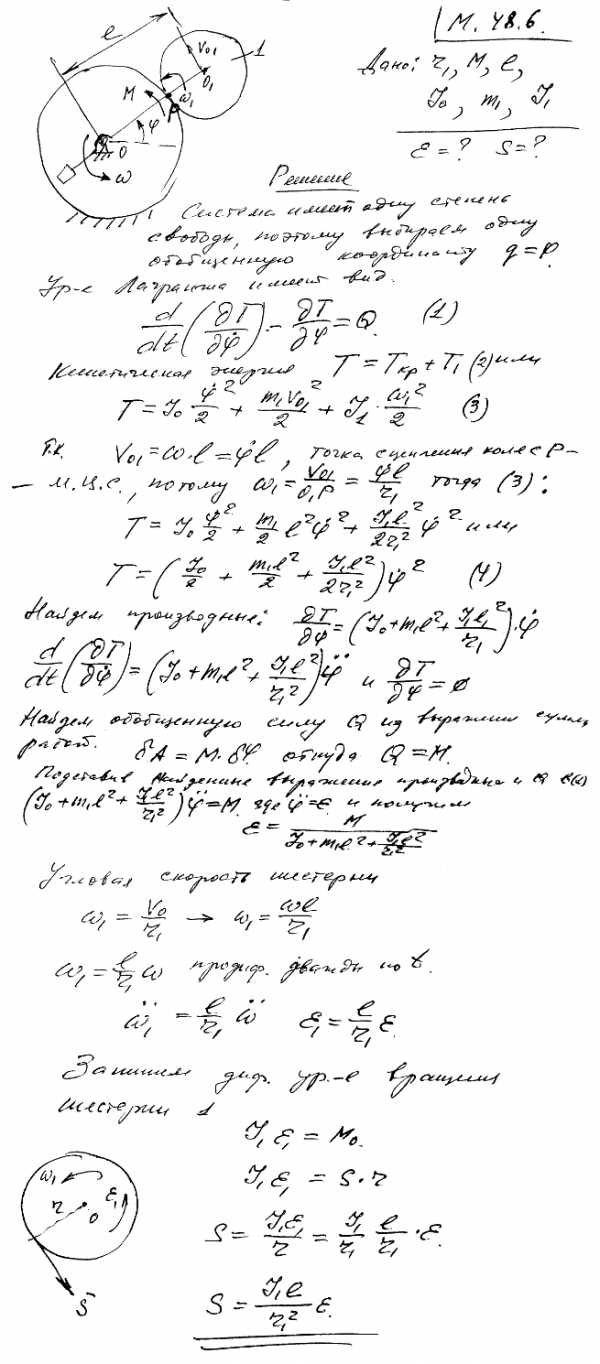 М. 48.6.
Дано: r₁, M, l,
J₀, m₁, J₁
ε = ? S = ?
l
V₀₁
1
O₁
M
ω₁
P
φ
O
ω
Решение
Система имеет одну степень
свободы, поэтому выбираем одну
обобщенную координату q = φ.
Ур-е Лагранжа имеет вид.
d/dt (∂T/∂φ̇) − ∂T/∂φ = Q (1)
Кинетическая энергия T = Tкр + T₁ (2) или
T = J₀ φ̇²/2 + m₁V₀₁²/2 + J₁ · ω₁²/2 (3)
Т.к. V₀₁ = ω·l = φ̇l, точка сцепления колес P –
– М.Ц.С., потому ω₁ = V₀₁/O₁P = φ̇l/r₁ тогда (3):
T = J₀ φ̇²/2 + m₁/2 l²φ̇² + J₁l²/2r₁² φ̇² или
T = (J₀/2 + m₁l²/2 + J₁l²/2r₁²) φ̇² (4)
Найдем производные: ∂T/∂φ̇ = (J₀ + m₁l² + J₁l²/r₁)·φ̇
d/dt (∂T/∂φ̇) = (J₀ + m₁l² + J₁l²/r₁²) φ̈ и ∂T/∂φ = 0
Найдем обобщенную силу Q из выражения суммы
работ. δA = M·δφ. откуда Q = M.
Подставив найденные выражения производных и Q в (1)
(J₀ + m₁l² + J₁l²/r₁²) φ̈ = M. где φ̈ = ε и получим
ε = M/(J₀ + m₁l² + J₁l²/r₁²)
Угловая скорость шестерни
ω₁ = V₀/r₁ → ω₁ = ωl/r₁
ω₁ = l/r₁ ω продиф. дважды по t.
ω̈₁ = l/r₁ ω̈ ε₁ = l/r₁ ε.
Запишем диф. ур-е вращения
шестерни 1
J₁ε₁ = M₀.
J₁ε₁ = S·r
S = J₁ε₁/r = J₁/r₁ l/r₁ · ε.
S = J₁l/r₁² ε.
ω₁
r
O
ε₁
S̄